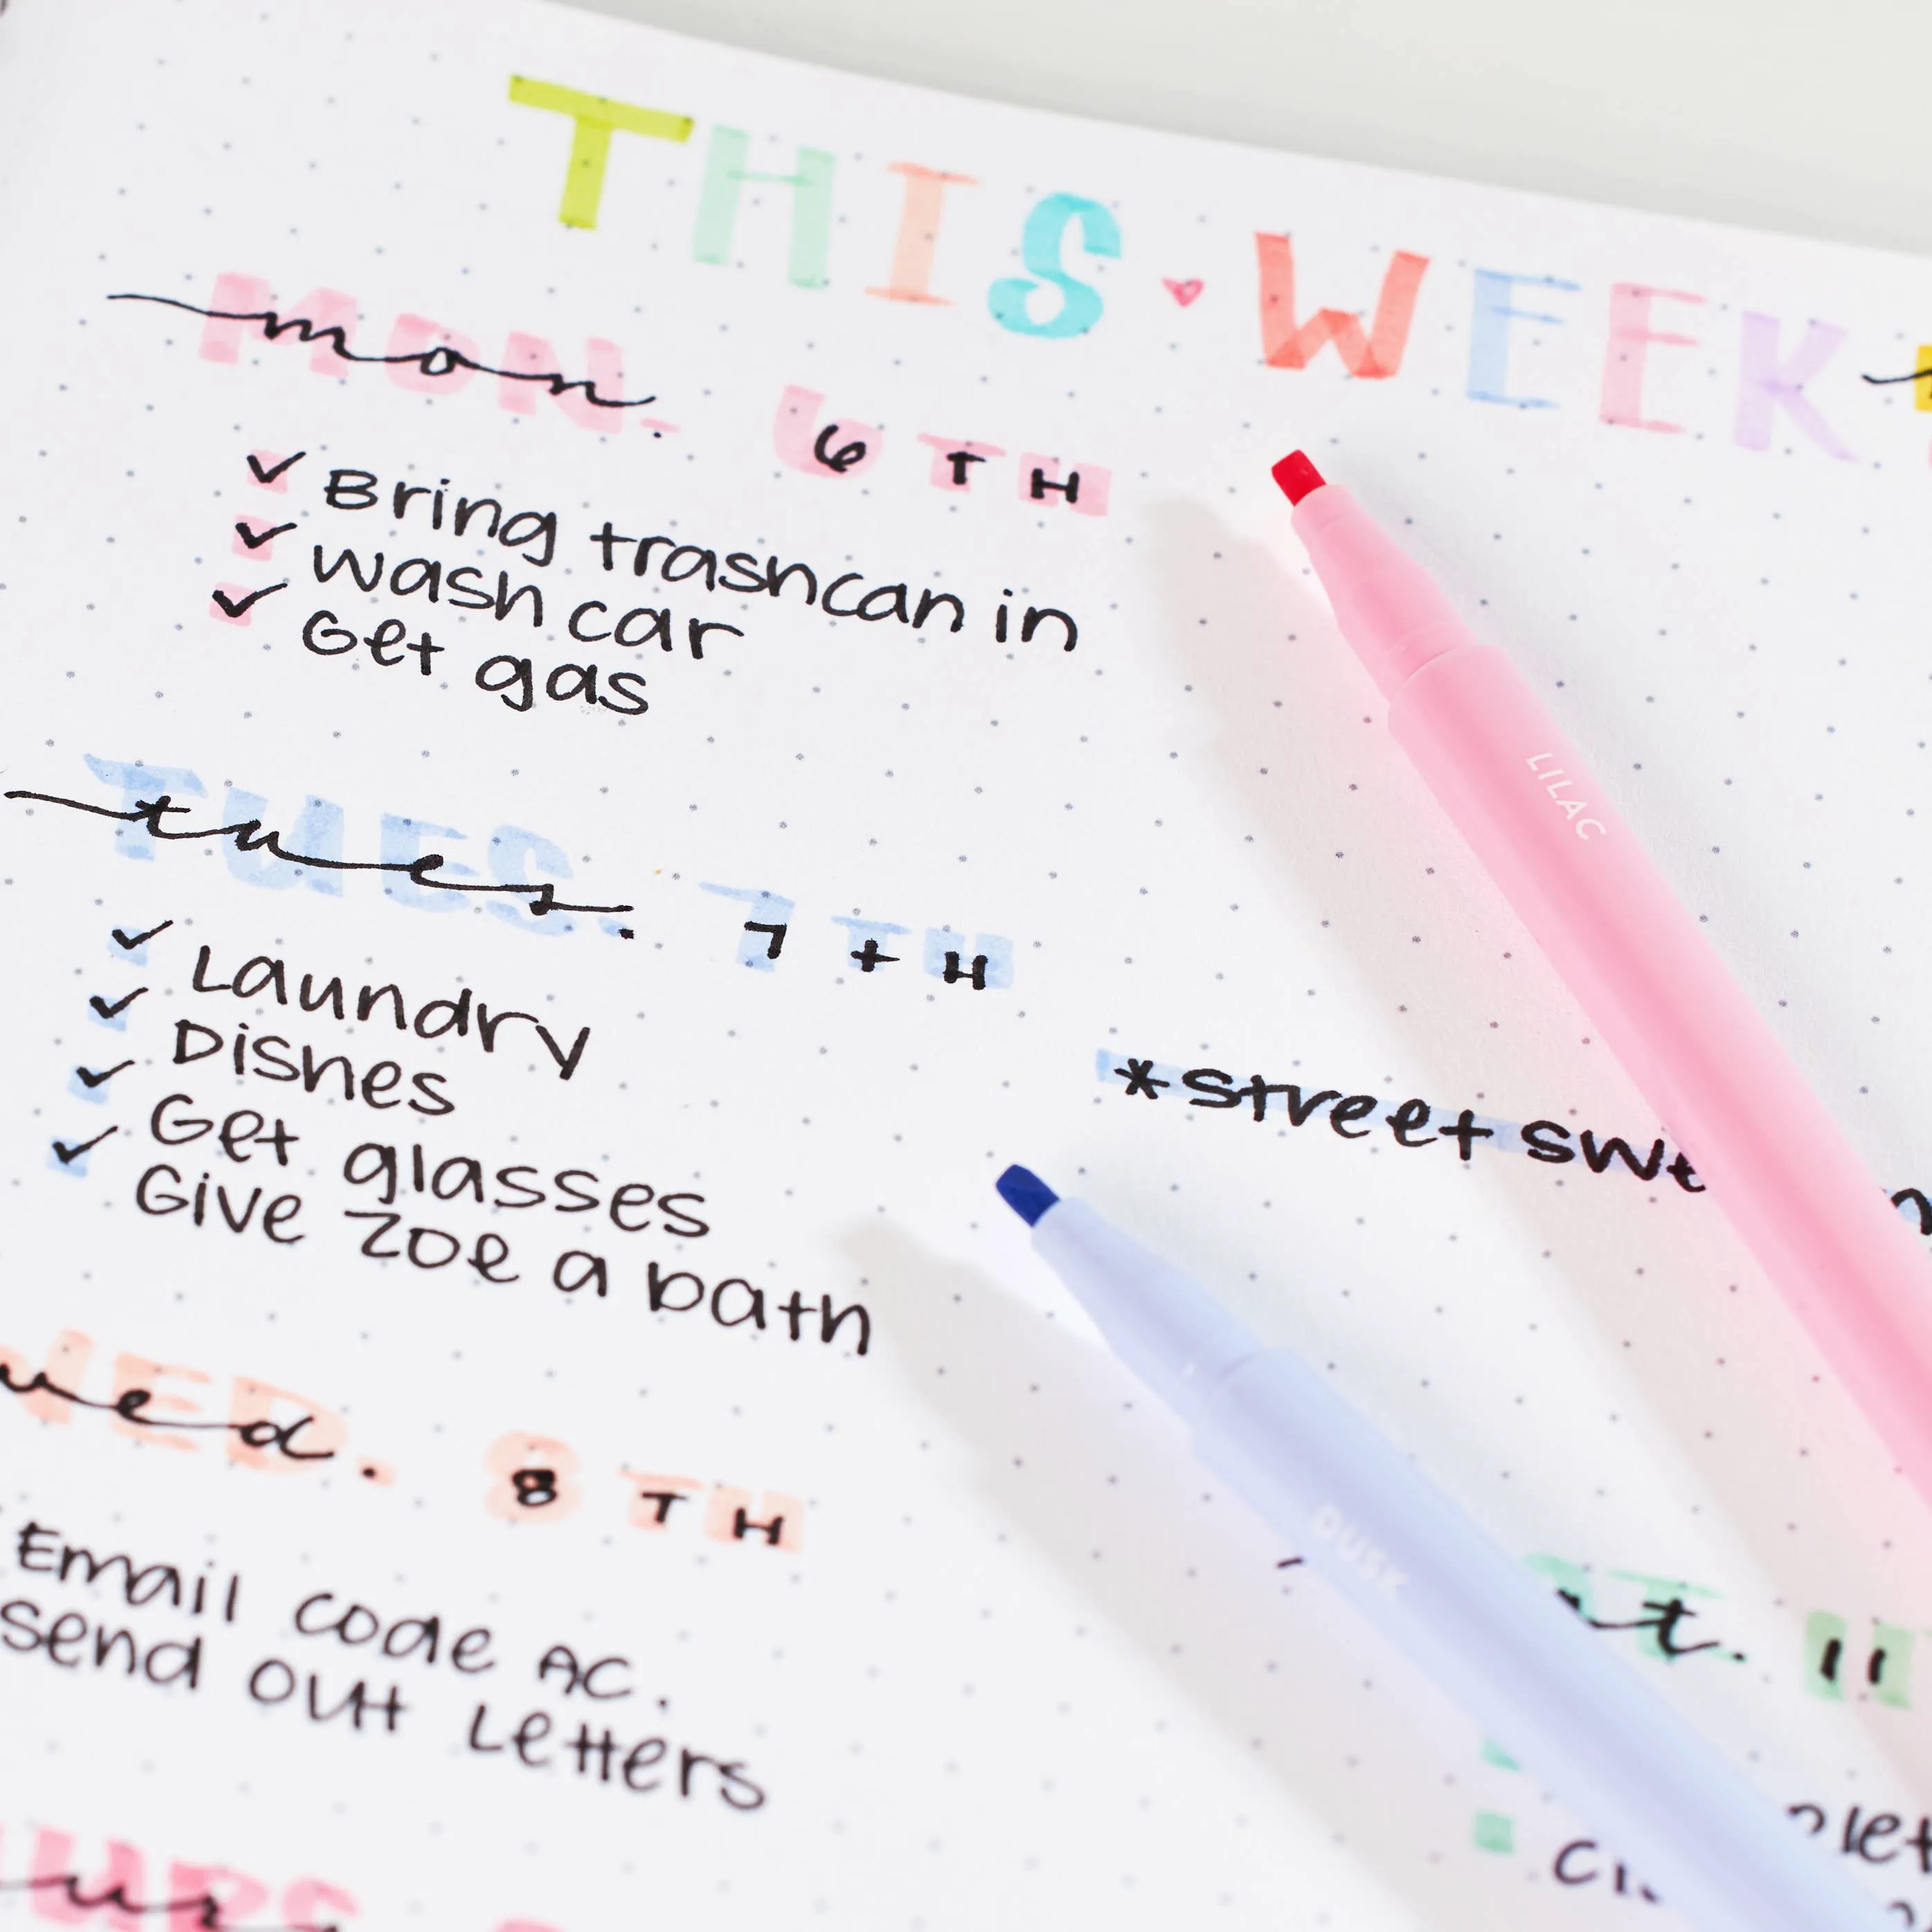 THIS ♥ WEEK
mon. 6TH
✓ Bring trashcan in
✓ wash car
✓ Get gas
tues. 7tH
✓ Laundry
✓ Dishes
✓ Get glasses
✓ Give Zoe a bath
*street
8TH
Email code AC.
send out Letters
11
LILAC
DUSK